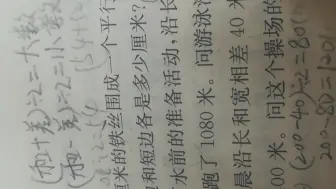 (和+差)÷2=大数
(和-差)÷2=小数
厘米的铁丝围成一个平行
和短边各是多少厘米?
水前的准备活动,沿长
跑了 1080 米。问游泳池
晨沿长和宽相差 40 米
00 米。问这个操场的
(200-40)÷2=80(
200-80=120(